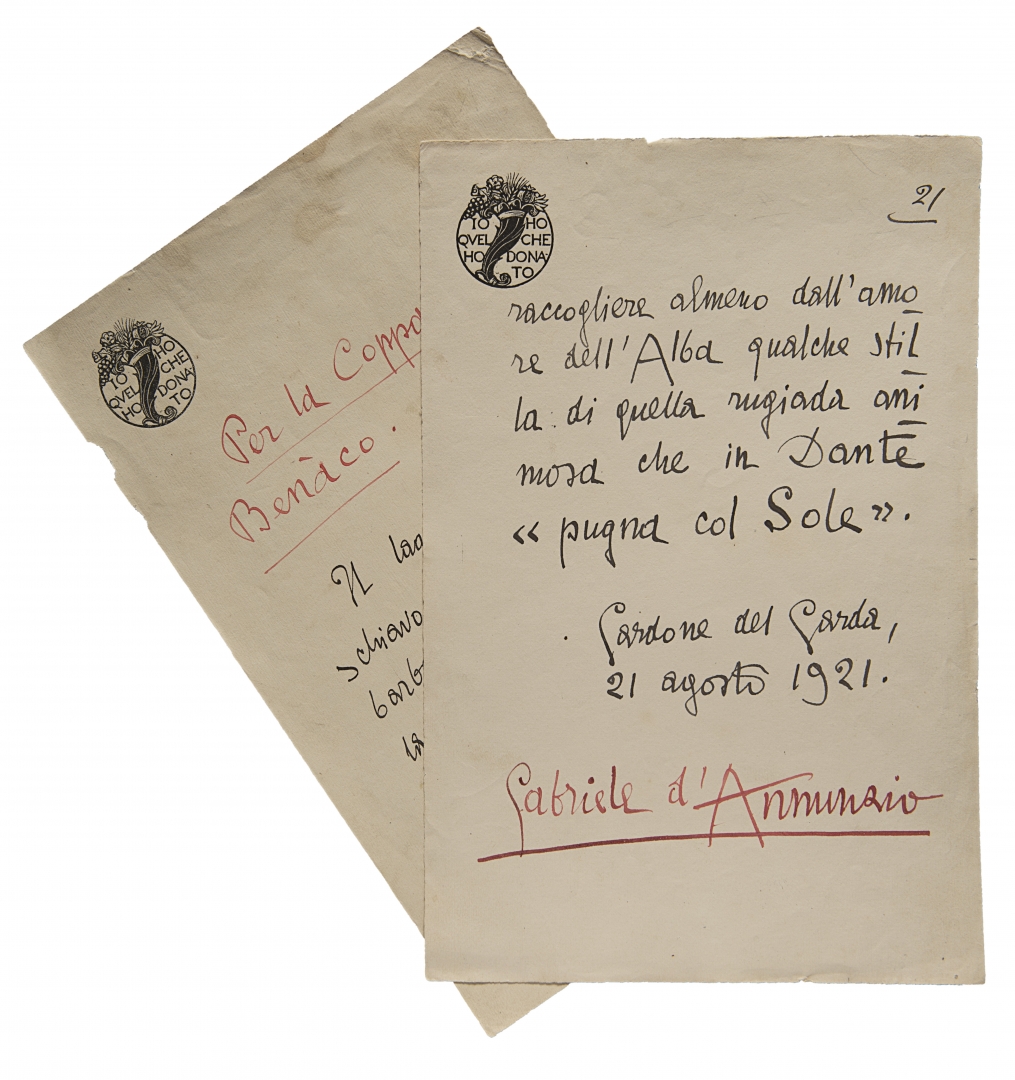 IO HO
QVEL CHE
HO DONA·
TO
Per la Coppa
Benàco.
Il
schiavo
barb
la
IO HO
QVEL CHE
HO DONA·
TO
21
raccogliere almeno dall'amo
re dell'Alba qualche stil
la di quella rugiada ani
mosa che in Dante
« pugna col Sole ».
Gardone del Garda,
21 agosto 1921.
Gabriele d'Annunzio